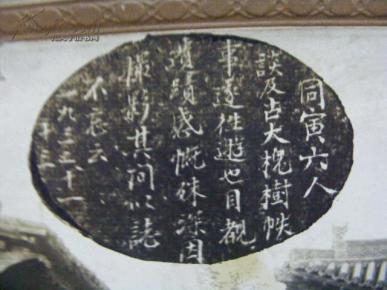 同寅六人
談及古大槐樹帙
事遂往遊也目覩
遺蹟感慨殊深因
撮影其间以誌
不忘云
一九三三十一
十三